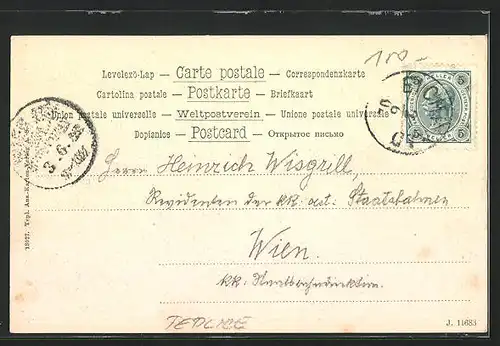 100-
Levelező-Lap — Carte postale — Correspondenzkarte
Cartolina postale — Postkarte — Briefkaart
Union postale universelle — Weltpostverein — Unione postale universale
Dopisnice — Postcard — Открытое письмо
HELLER
5 5
3.6.
Herrn Heinrich Wisgrill,
Revidenten der kk. öst. Staatsbahnen
Wien.
kk. Staatsbahndirektion.
TEPLICE
J. 11683